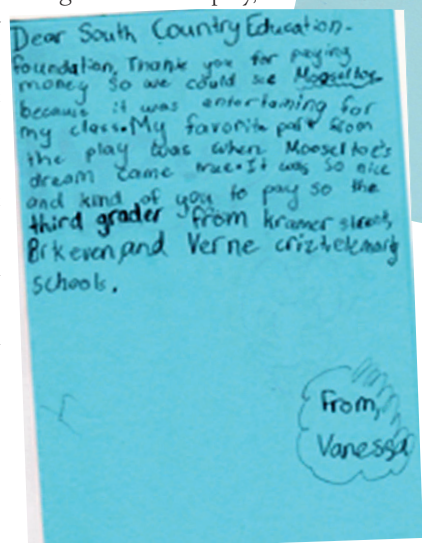 Dear South Country Education-
foundation, Thank you for paying
money so we could see Mooseltoe
because it was entertaining for
my class. My favorite part from
the play was when Mooseltoe's
dream came true. It was so nice
and kind of you to pay so the
third grader from kramer street,
Brkeven and Verne criztelmarg
schools.
From,
Vanessa